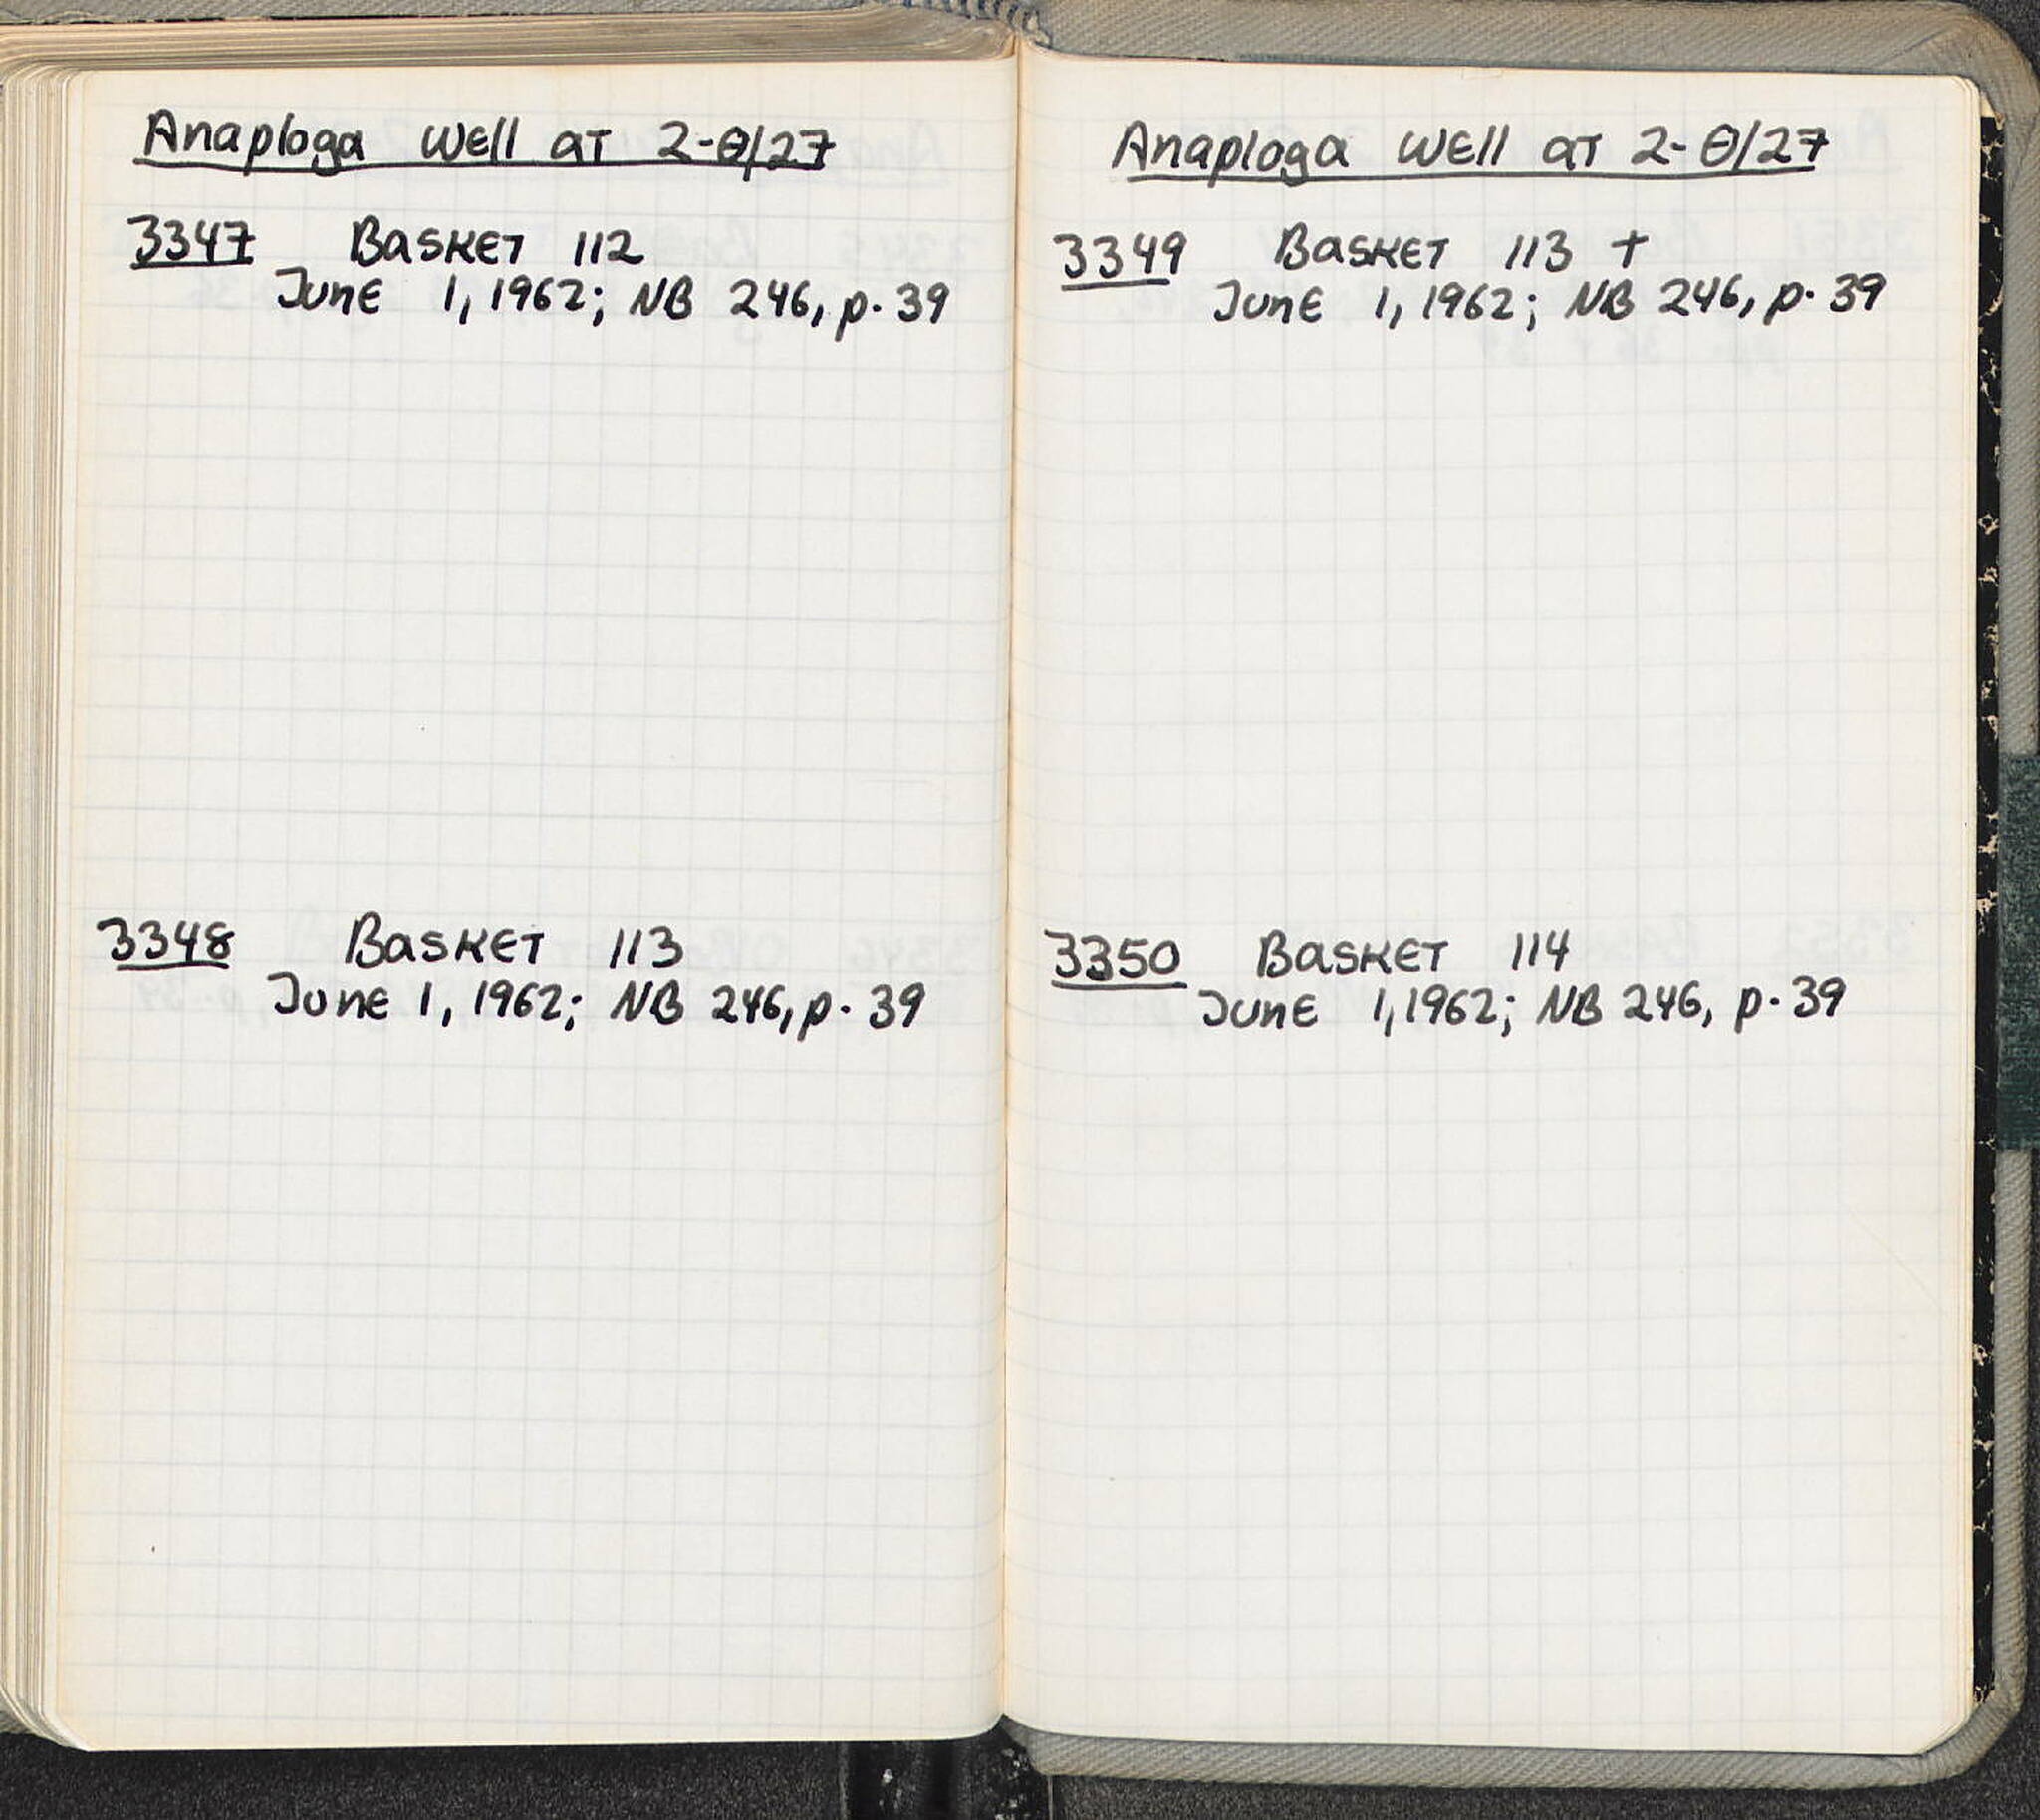 Anaploga Well at 2-Θ/27
3347 Basket 112
June 1, 1962; NB 246, p. 39
3348 Basket 113
June 1, 1962; NB 246, p. 39
Anaploga Well at 2-Θ/27
3349 Basket 113 +
June 1, 1962; NB 246, p. 39
3350 Basket 114
June 1, 1962; NB 246, p. 39